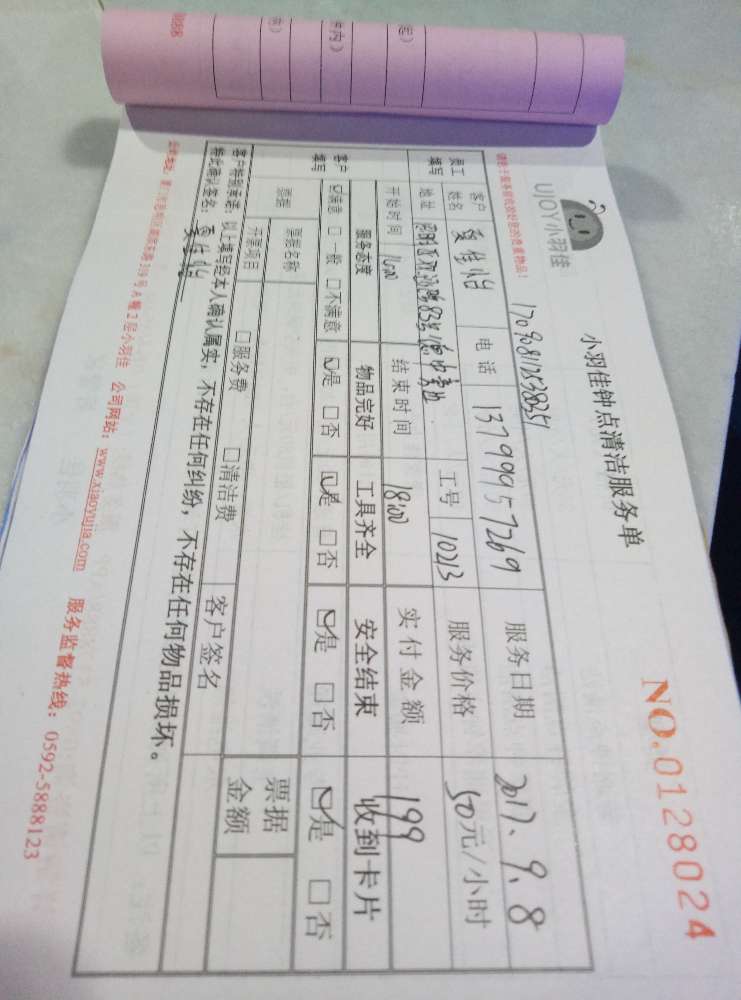 UJOY小羽佳
小羽佳钟点清洁服务单
NO.0128024
170908112538351
员工填写 客户姓名 电话 13799957269 服务日期 2017.9.8
地址 工号 10213 服务价格 50元/小时
开始时间 结束时间 18:00 实付金额 199
客户填写 服务态度 物品完好 工具齐全 安全结束 收到卡片
☑满意 □一般 □不满意 ☑是 □否 ☑是 □否 ☑是 □否 ☑是 □否
票据 票据名称 票据金额
开票项目 □服务费 □清洁费 客户签名
客户特别声明：以上填写经本人确认属实，不存在任何纠纷，不存在任何物品损坏。
特此确认签名：
公司网站：www.xiaoyujia.com 服务监督热线：0592-5888123